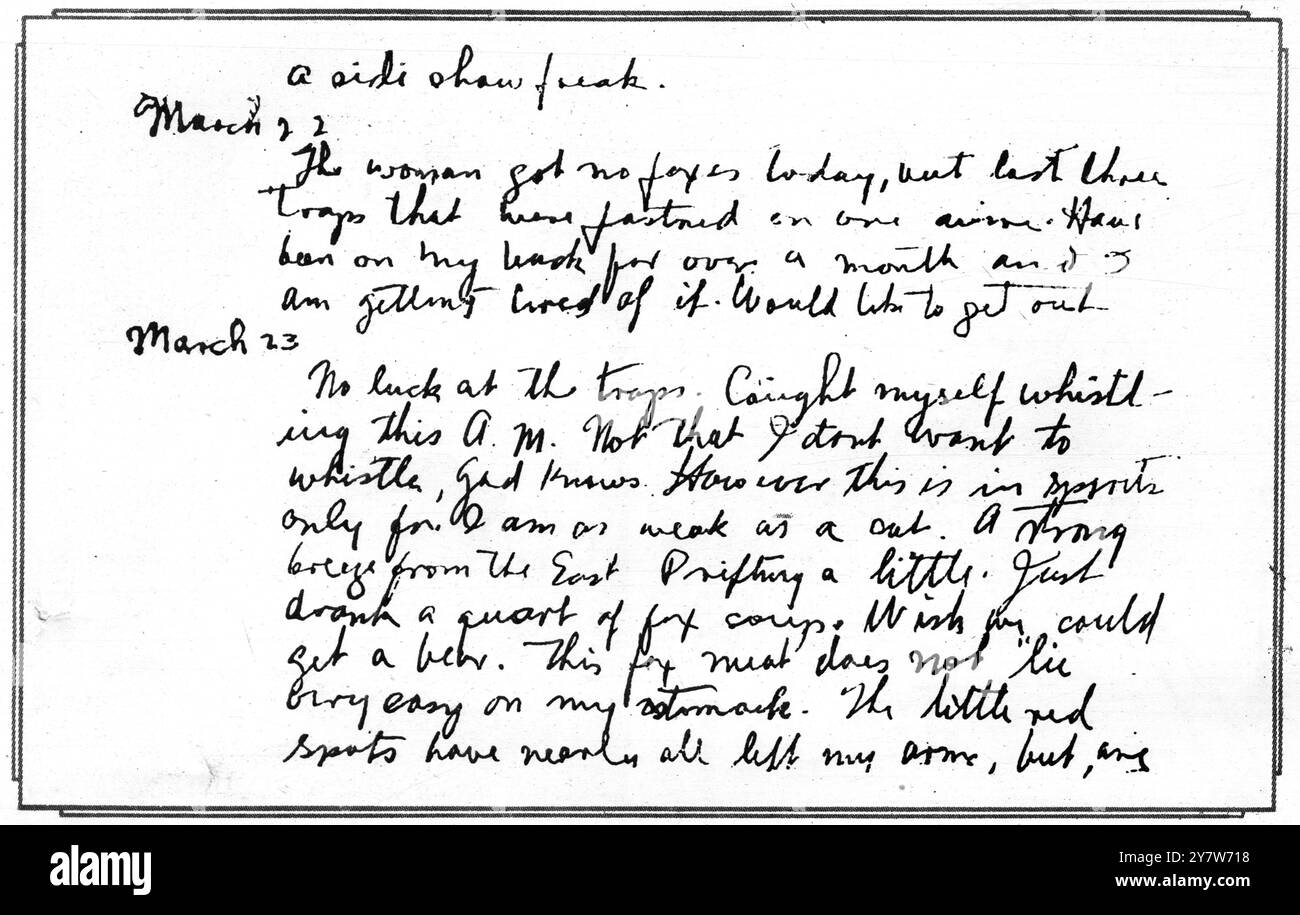 a side show freak.
March 22
The woman got no foxes today, but lost three
traps that were fastned on one wire. Have
been on my back for over a month and I
am getting tired of it. Would like to get out
March 23
No luck at the traps. Caught myself whistl-
ing this A.M. Not that I dont want to
whistle, God knows. However this is in spirits
only for I am as weak as a cat. A strong
breeze from the East Drifting a little. Just
drank a quart of fox soup. Wish we could
get a bear. This fox meat does not "lie
very easy on my stomack. The little red
spots have nearly all left my arms, but are
alamy
a
alamy
Image ID: 2Y7W718
www.alamy.com